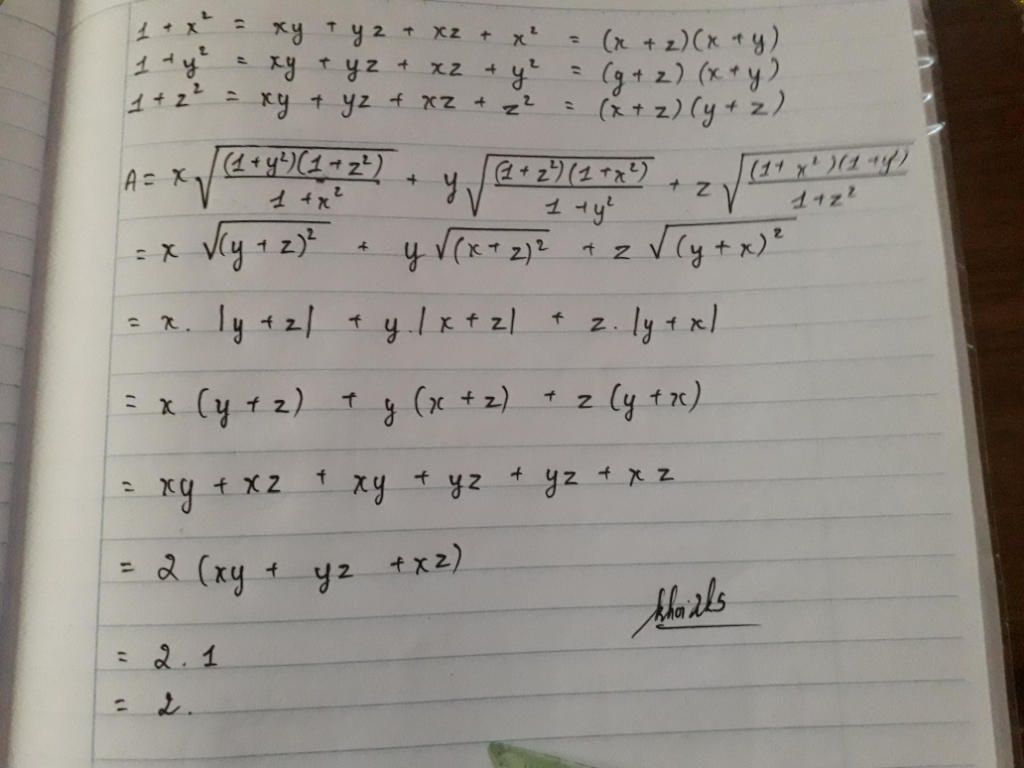 1 + x² = xy + yz + xz + x² = (x + z)(x + y)
1 + y² = xy + yz + xz + y² = (y + z) (x + y)
1 + z² = xy + yz + xz + z² = (x + z) (y + z)
A = x √((1+y²)(1+z²)/(1+x²)) + y √((1+z²)(1+x²)/(1+y²)) + z √((1+x²)(1+y²)/(1+z²))
= x √(y + z)² + y √(x + z)² + z √(y + x)²
= x. |y + z| + y. |x + z| + z. |y + x|
= x (y + z) + y (x + z) + z (y + x)
= xy + xz + xy + yz + yz + xz
= 2 (xy + yz + xz)
= 2. 1
= 2.